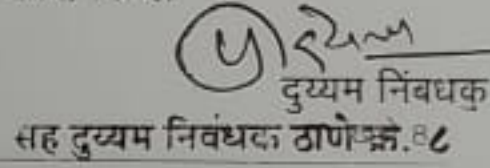 दुय्यम निंबधक
सह दुय्यम निवंधक ठाणे क्र. ८